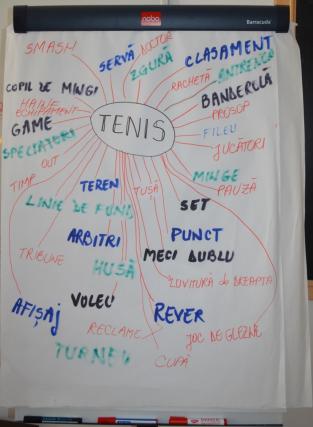 nobo
Barracuda
SMASH
SERVĂ
DOCTOR
ZGURĂ
CLASAMENT
RACHETĂ
ANTRENOR
COPIL DE MINGI
BANDEROLA
HAINE
ECHIPAMENT
PROSOP
GAME
TENIS
FILEU
SPECTATORI
JUCĂTORI
OUT
TIMP
MINGE
TEREN
TUȘĂ
PAUZĂ
LINIE DE FUND
SET
ARBITRI
PUNCT
TRIBUNE
MECI DUBLU
HUSĂ
LOVITURĂ de DREAPTA
VOLEU
AFIȘAJ
REVER
RECLAME
JOC DE GLEZNE
TURNEU
CUPĂ